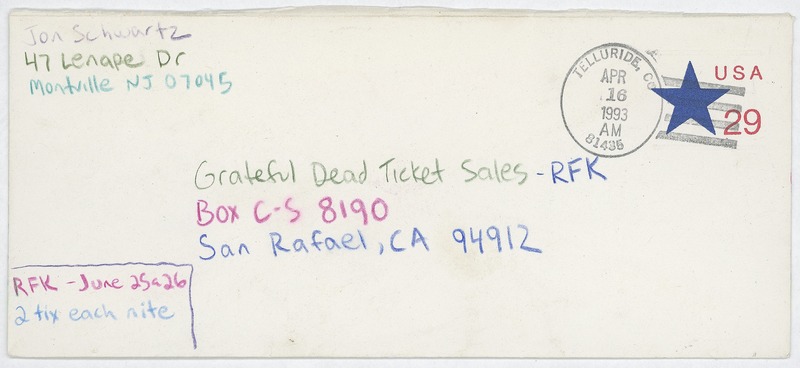 Jon Schwartz
47 Lenape Dr
Montville NJ 07045
TELLURIDE, CO
APR
16
1993
AM
81435
USA
29
Grateful Dead Ticket Sales - RFK
Box C-S 8190
San Rafael, CA 94912
RFK - June 25 & 26
2 tix each nite